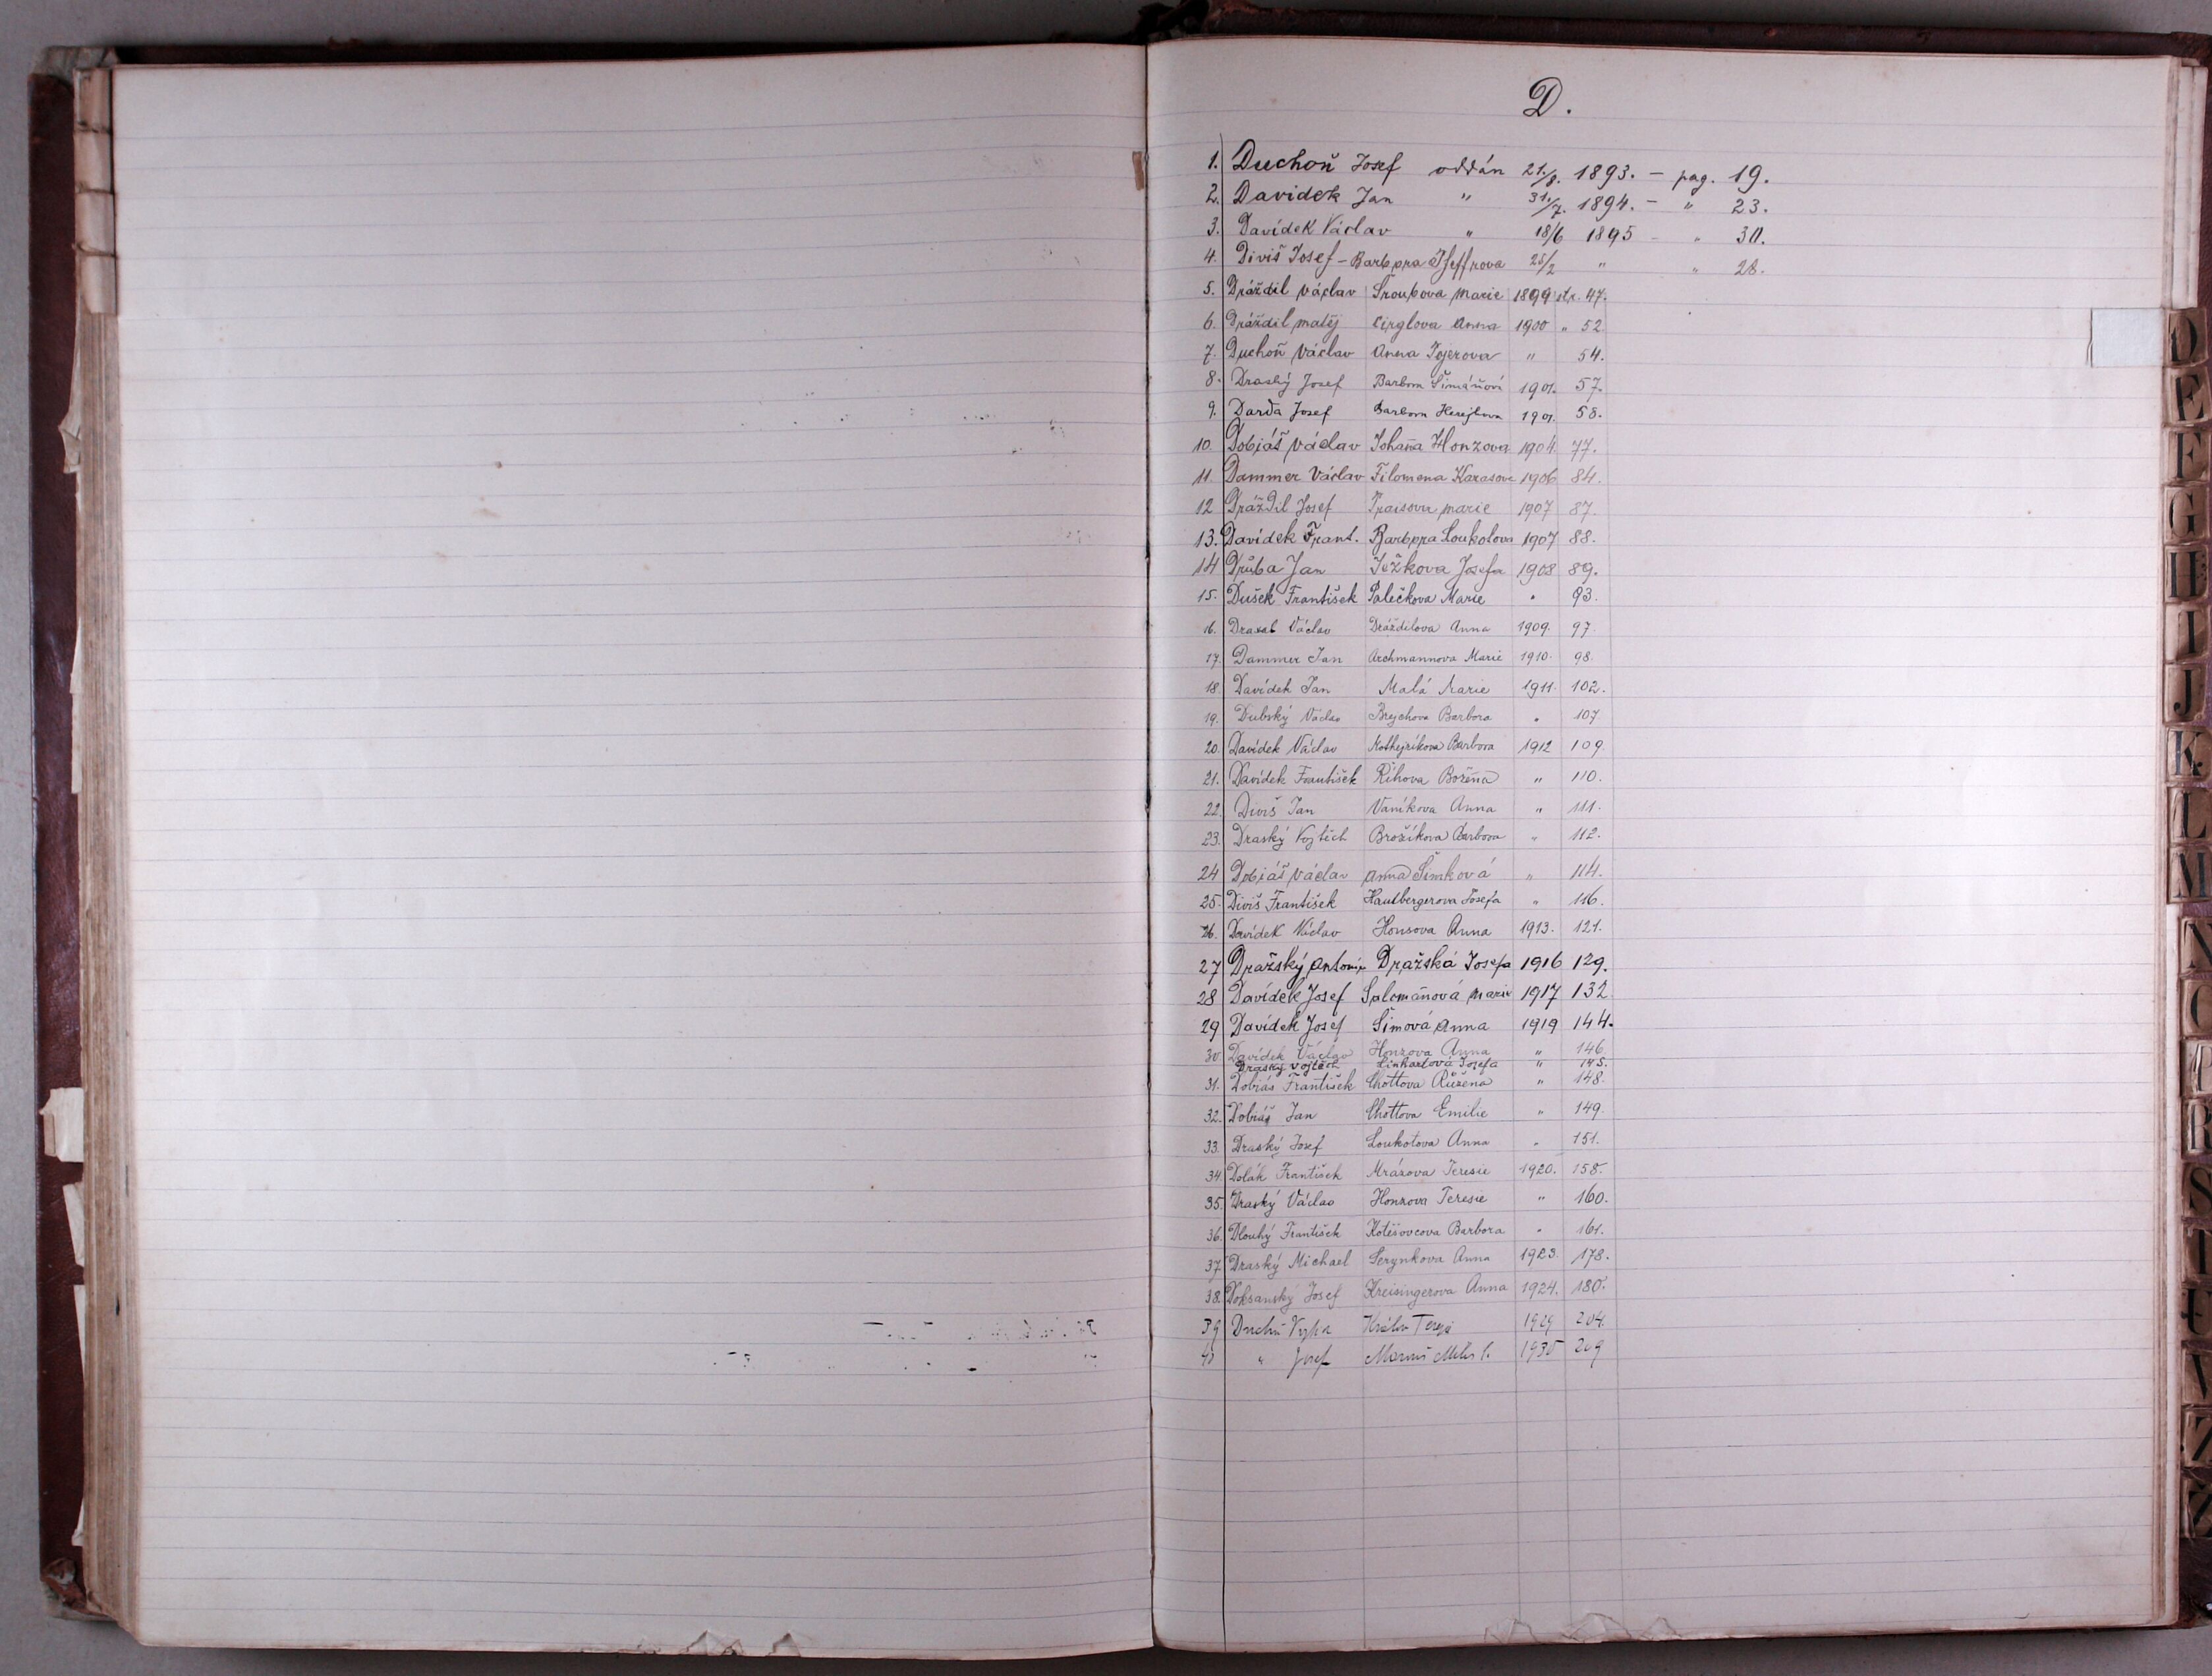 D.
1. Duchoň Josef oddán 21./8. 1893. - pag. 19.
2. Davidek Jan " 31./7. 1894. - " 23.
3. Davídek Václav " 18/6 1895 - " 30.
4. Diviš Josef - Barbora 25/2 " " 28.
5. Dráždil Václav Šroubova Marie 1899 str. 47.
6. Dráždil Matěj Cirglova Anna 1900 " 52
7. Duchoň Václav Anna " 54.
8. Draský Josef Barbora Šimáňová 1901. 57.
9. Darda Josef Barbora 1901. 58.
10. Dobiáš Václav Johana Honzova 1904. 77.
11. Dammer Václav Filomena Karasova 1906 84.
12 Dráždil Josef Praisova Marie 1907 87.
13. Davídek Frant. Barbora Loukotova 1907 88.
14 Důba Jan Ježkova Josefa 1908 89.
15. Dušek František Palečkova Marie " 93.
16. Václav Dráždilova Anna 1909. 97.
17. Dammer Jan Archmannova Marie 1910. 98.
18. Davídek Jan Malá Marie 1911. 102.
19. Dubský Václav Brejchova Barbora " 107
20. Davídek Václav Kothejríkova Barbora 1912 109.
21. Davídek František Říhova Božena " 110.
22. Diviš Jan Vaníkova Anna " 111.
23. Draský Vojtěch Brožíkova Barbora " 112.
24 Dobiáš Václav Anna Šimková " 114.
25. Diviš František Hautbergerova Josefa " 116.
26. Davídek Václav Honsova Anna 1913. 121.
27 Dražský Antonín Dražská Josefa 1916 129.
28 Davídek Josef Salomanová Marie 1917 132
29 Davídek Josef Šimová Anna 1919 144.
30. Davídek Václav Honzova Anna " 146
Draský Vojtěch Linhartová Josefa " 145.
31. Dobiás František Chottova Růžena " 148.
32. Dobiáš Jan Chottova Emilie " 149.
33. Draský Josef Loukotova Anna " 151.
34. Dolák František Mrázova Teresie 1920. 158.
35. Draský Václav Honzova Teresie " 160.
36. Dlouhý František Kotěšovcova Barbora " 161.
37. Draský Michael Serynkova Anna 1923. 178.
38. Doksanský Josef Kreisingerova Anna 1924. 180.
39 1929 204.
40 " Josef 1930 209
D
E
F
G
H
I
J
K
L
M
N
O
P
R
S
T
U
V
Z
Ž